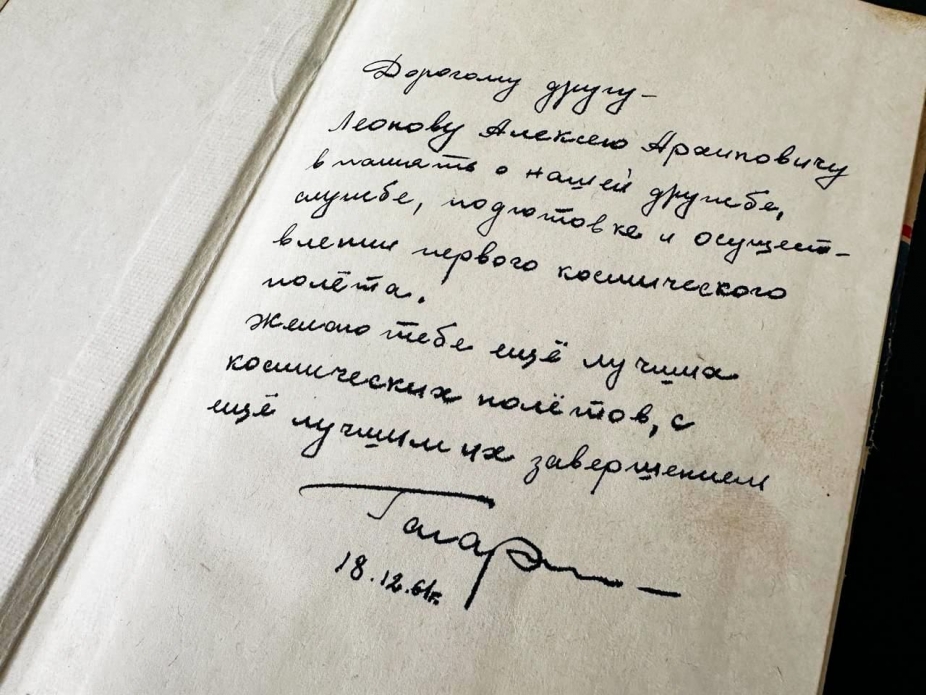 Дорогому другу —
Леонову Алексею Архиповичу
в память о нашей дружбе,
службе, подготовке и осущест-
влении первого космического
полёта.
Желаю тебе ещё лучших
космических полётов, с
ещё лучшим их завершением
Гагарин
18.12.61г.